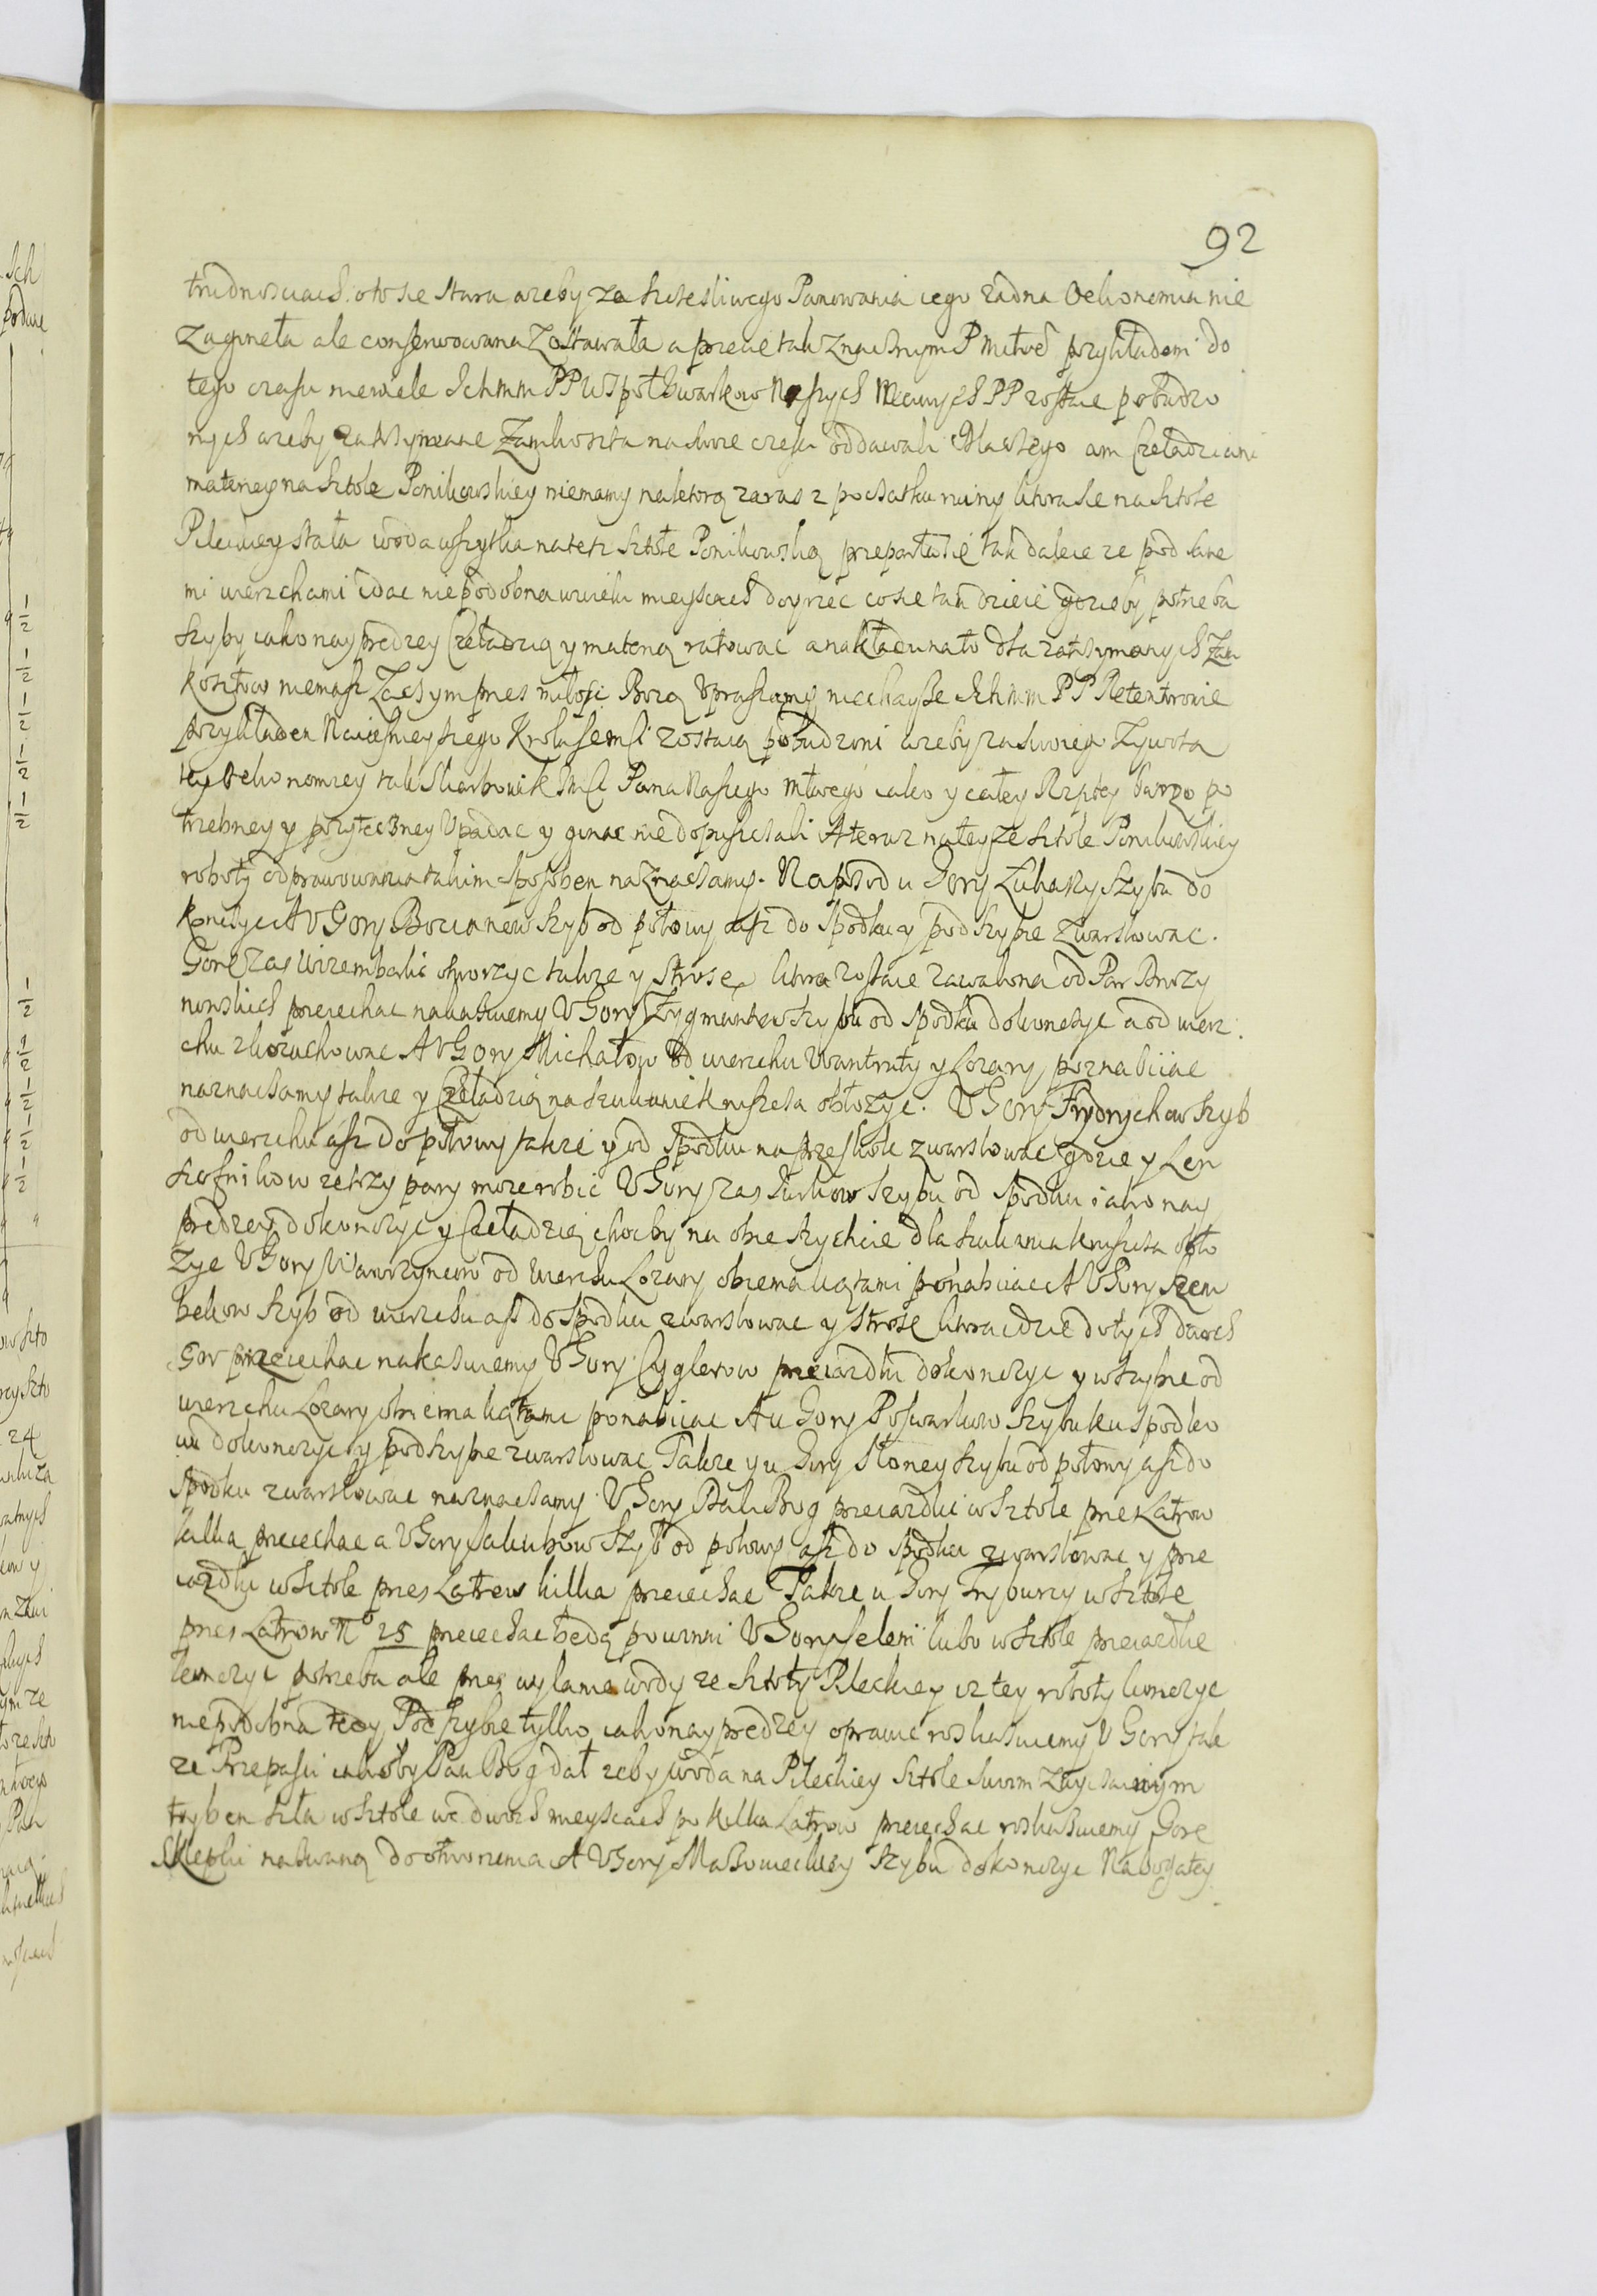 92
trudnosciach oto sie stara azeby za sczesliwego Panowania iego zadna Oekonomia nie
Zagineła ale conserwowana Zostawała a przecie tak Znacznym P przykładem do
tego czasu niewiele Ichmm PP Wspołgwarkow Naszych PP zostaie pobudzo
nych azeby zatrzymane Zamkoszta na swoie czasu oddawali Dlaczego ani Czeladzi ani
materyey na Sztole Ponikowskiey niemamy na ktorą zaraz z początku ruiny ktora sie na sztole
Pileckiey stała woda wszytka na tesz Sztołe Ponikowską przeparła sie tak dalece ze pod same
mi wierzchami idac niepodobna w wielu mieyscach doyrzec co sie tam dzieie gdzieby potrzeba
szyby iako nayprędzey Czeladzią y materią ratowac a nakładu na to dla zatrzymanych Zam
kosztow niemasz Zaczym przes miłosc Bozą Upraszamy niechaysze Ichmm PP Retentorowie
przykładem Naiasnieyszego Krola Iemsci zostaią pobudzeni azeby za swoiego Zywota
tey Oekonomiey tak Skarbowi K Imsci Pana Naszego Młwego iako y całey Rzptey barzo po
trzebney y pozyteczney Upadac y ginac nie dopuszczali A teraz na teyze sztole Ponikowskiey
roboty odprawowania takim sposobem naznaczamy. Naprzod u Gory Lubaky szybu do
konczyc A U Gory Bocianow szyb od połowy asz do spodku y podszybie zwarstowac.
Gorę zas Wizembarki otworzyc takze y strosę ktora zostaie zawalona od Par Brozy
nowskich przeiechac nakazuiemy U Gory Zygmuntow szybu od spodku dokonczyc a od wierz
chu zkozuchowac A U Gory Michałow od wierzchu Wantruty y Lozary poznabiiac
naznaczamy takze y Czeladzią na szukanie kruszcza obłozyc. U Gory Frydrychow szyb
od wierzchu asz do połowy takze y od spodku na przeskok zwarstowac gdzie y Len
szosnikow ze trzy pary moze robic U Gory zas Turkow szybu od spodku iako nay
prędzey dokonczyc y Czeladzią chocby na obie sztychcie dla szukania kruszcza obło
zyc U Gory Wawrzyncow od wierzchu Lozary obiema kątami ponabiiac A U Gory Szem
bekow szyb od wierzchu asz do spodku zwarstowac y strosę ktora idzie do tych dwoch
Gor przeiechac nakazuiemy U Gory Cyglerow przeiazdki dokonczyc y w szybie od
wierzchu Lozary obiema kątami ponabiiac A u Gory Poswarkow szybu ku spodko
wi dokonczyc y podszybie zwarstowac Takze y u Gory Słoney szybu od połowy asz do
spodku zwarstowac naznaczamy U Gory Dali Bog przeiazdki w sztole przes Łatrow
kilka przeiechac a U Gory Iakubow szyb od połowy asz do spodku zwarstowac y prze
iazdki w Sztole przes Łatrow kilka przeiechac Takze u Gory Trybury w sztole
przes Łatrow No 25 przeiechac będą powinni U Gory Seleni lubo w sztole przeiazdke
konczyc potrzeba ale przes wylanie wody ze sztoły Pileckiey iz tey roboty konczyc
niepodobna tedy Podszybie tylko iako nayprędzey oprawic roskazuiemy U Gory tak
ze Przepasci iakoby Pan Bog dał zeby woda na Pileckiey sztole swoim zwyczaynym
trybem szła w sztole we dwoch mieyscach po kilka Łatrow przeiechac roskazuiemy Gore
Sklepki nazwaną do otworzenia A U Gory Mazowieckiey szybu dokonczyc Na bogatey